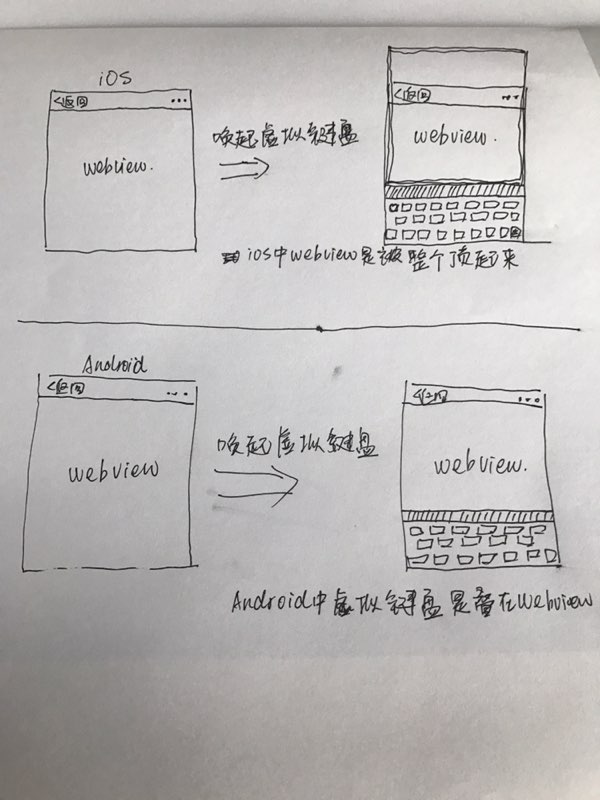 iOS
<返回 ...
webview.
唤起虚拟键盘
<返回 ...
webview.
iOS中webview是被整个顶起来
Android
<返回 ...
webview
唤起虚拟键盘
<返回 ...
webview.
Android中虚拟键盘是叠在webview